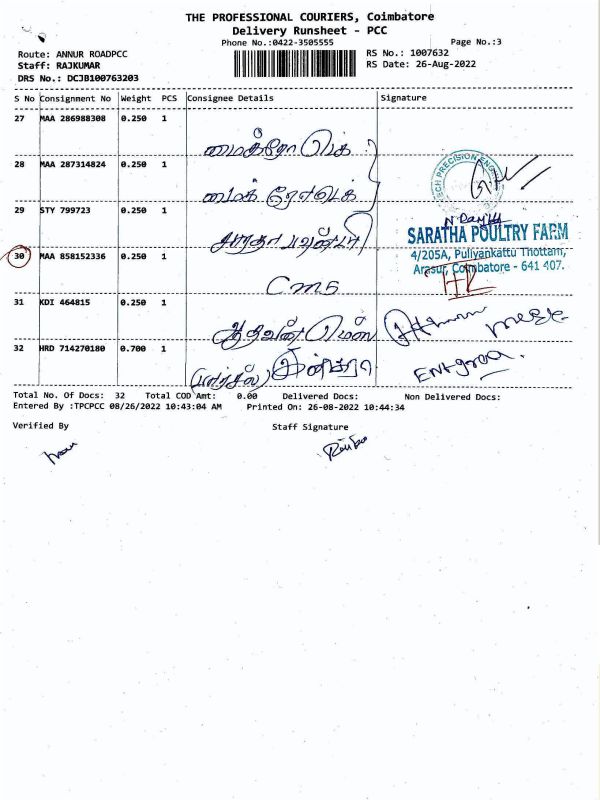 THE PROFESSIONAL COURIERS, Coimbatore
Delivery Runsheet - PCC
Phone No.:0422-3505555
Page No.:3
Route: ANNUR ROADPCC
RS No.: 1007632
Staff: RAJKUMAR
RS Date: 26-Aug-2022
DRS No.: DCJB100763203
S No Consignment No Weight PCS Consignee Details Signature
27 MAA 286988308 0.250 1
28 MAA 287314824 0.250 1
29 STY 799723 0.250 1
SARATHA POULTRY FARM
30 MAA 858152336 0.250 1
4/205A, Puliyankattu Thottam,
Arasur, Coimbatore - 641 407.
CMS
31 KDI 464815 0.250 1
32 HRD 714270180 0.700 1
Total No. Of Docs: 32 Total COD Amt: 0.00 Delivered Docs: Non Delivered Docs:
Entered By :TPCPCC 08/26/2022 10:43:04 AM Printed On: 26-08-2022 10:44:34
Verified By Staff Signature